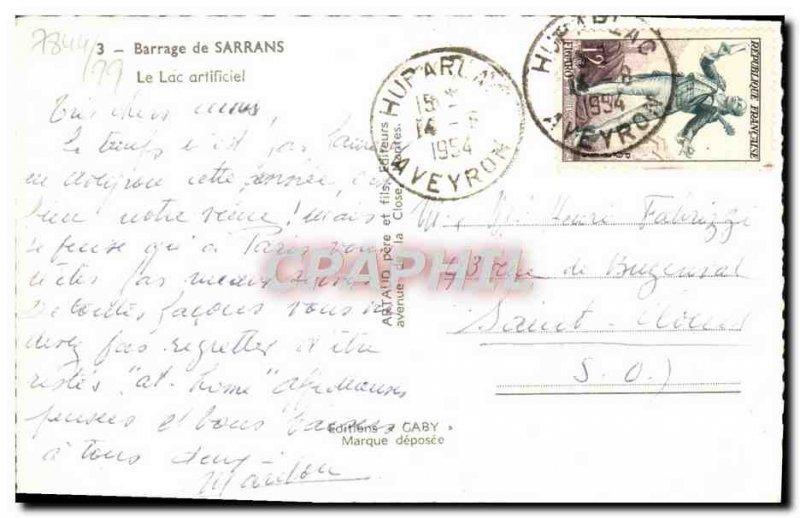 7844/99
3 - Barrage de SARRANS
Le Lac artificiel
HUPARLAC
15
14 - 8
1954
AVEYRON
HUPARLAC
8
1954
AVEYRON
12F
FIGARO
RÉPUBLIQUE FRANÇAISE
POSTES
Très chers amis
Le temps n'est pas
en Aveyron cette année,
bien notre veine! Mais
je pense qu'à Paris vous
n'êtes pas mieux
De toutes façons vous ne
devez pas regretter d'être
restés "at home" affectueuses
pensées et bons baisers
à tous deux
ARTAUD père et fils, Editeurs
avenue de la Close, Nantes.
Editions « GABY »
Marque déposée
CPAPHIL
Mr Me Henri Fabrizzi
43 rue de Buzenval
Saint-Cloud
S. O.)